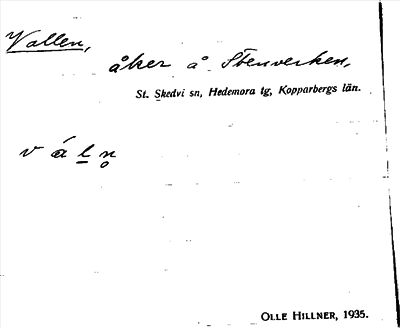 Vallen,
åker å Stenverken,
St. Skedvi sn, Hedemora tg, Kopparbergs län.
v á l̠ n̥
OLLE HILLNER, 1935.